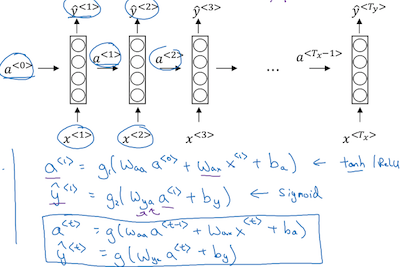 ŷ<1> ŷ<2> ŷ<3> ŷ<Ty>
a<0> a<1> a<2> ... a<Tx−1>
x<1> x<2> x<3> x<Tx>
a<1> = g₁(Waa a<0> + Wax x<1> + ba) ← tanh / ReLU
ŷ<1> = g₂(Wya a<1> + by) ← sigmoid
a<t> = g(Waa a<t-1> + Wax x<t> + ba)
ŷ<t> = g(Wya a<t> + by)